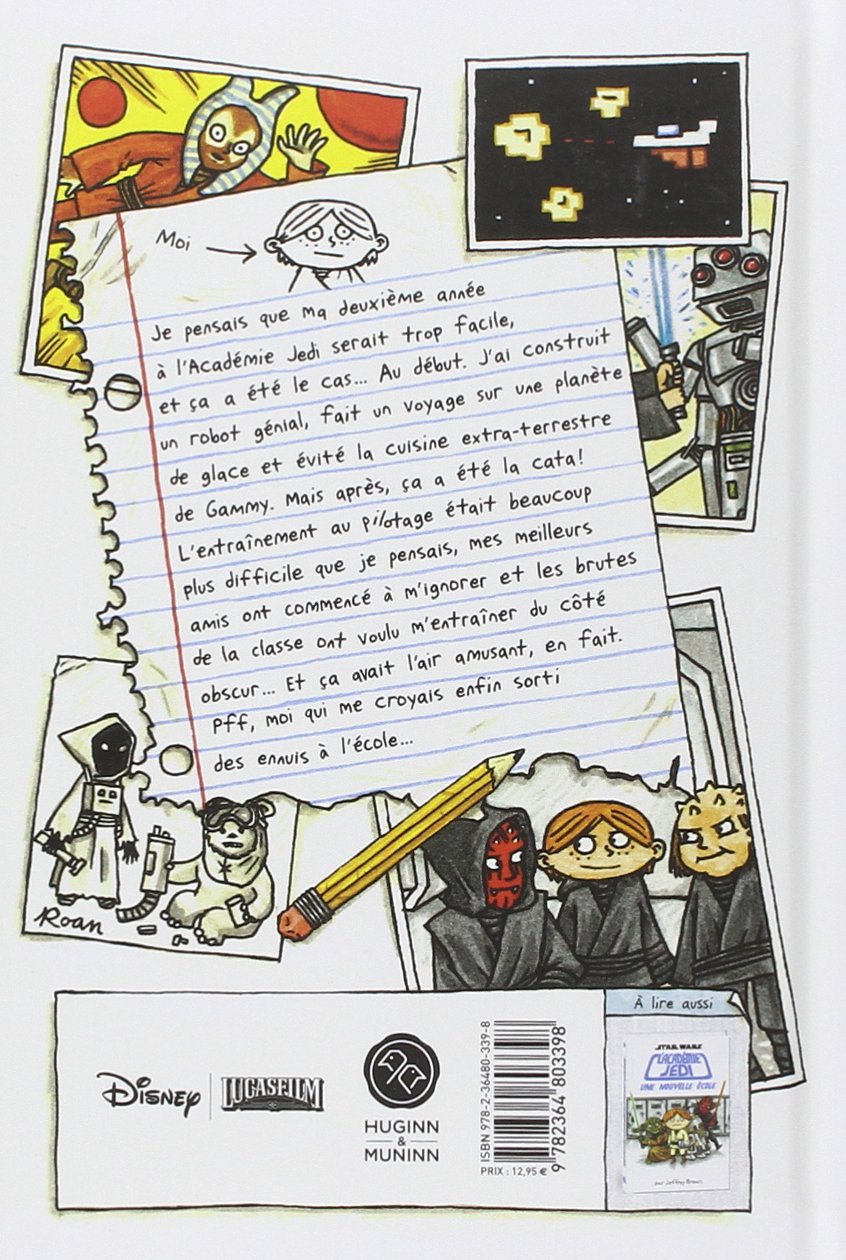 Moi
Je pensais que ma deuxième année
à l'Académie Jedi serait trop facile,
et ça a été le cas... Au début. J'ai construit
un robot génial, fait un voyage sur une planète
de glace et évité la cuisine extra-terrestre
de Gammy. Mais après, ça a été la cata!
L'entraînement au pilotage était beaucoup
plus difficile que je pensais, mes meilleurs
amis ont commencé à m'ignorer et les brutes
de la classe ont voulu m'entraîner du côté
obscur... Et ça avait l'air amusant, en fait.
Pff, moi qui me croyais enfin sorti
des ennuis à l'école...
Roan
Disney
LUCASFILM
HUGINN
&
MUNINN
ISBN 978-2-36480-339-8
9 782364 803398
PRIX : 12,95 €
À lire aussi
STAR WARS
L'ACADÉMIE
JEDI
UNE NOUVELLE ÉCOLE
par Jeffrey Brown